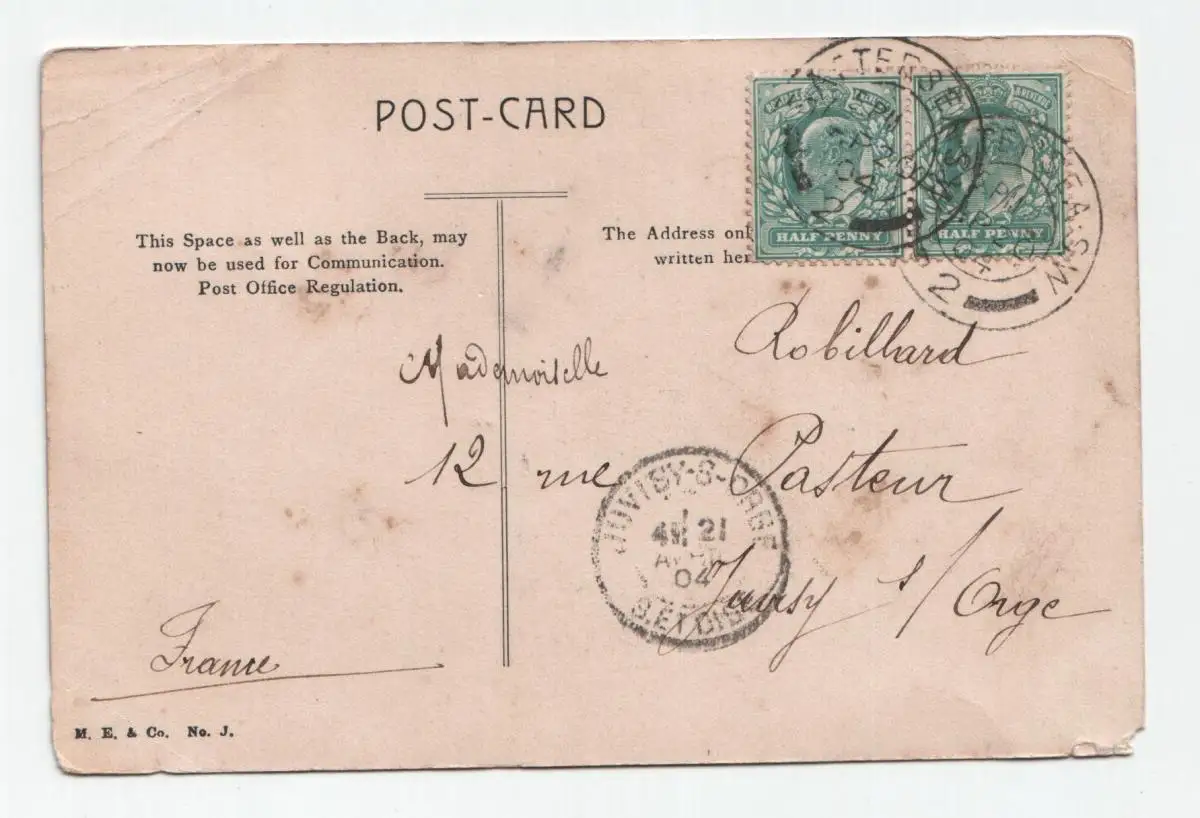 POST-CARD
This Space as well as the Back, may
now be used for Communication.
Post Office Regulation.
The Address onl
written her
HALF PENNY
HALF PENNY
BATTERSEA S.W
2
BATTERSEA.S.W
2
AP 20
04
Mademoiselle Robillard
12 rue Pasteur
Juvisy s/ Orge
France
JUVISY-S-ORGE
21
AVR
04
S.ET OISE
M. E. & Co. No. J.